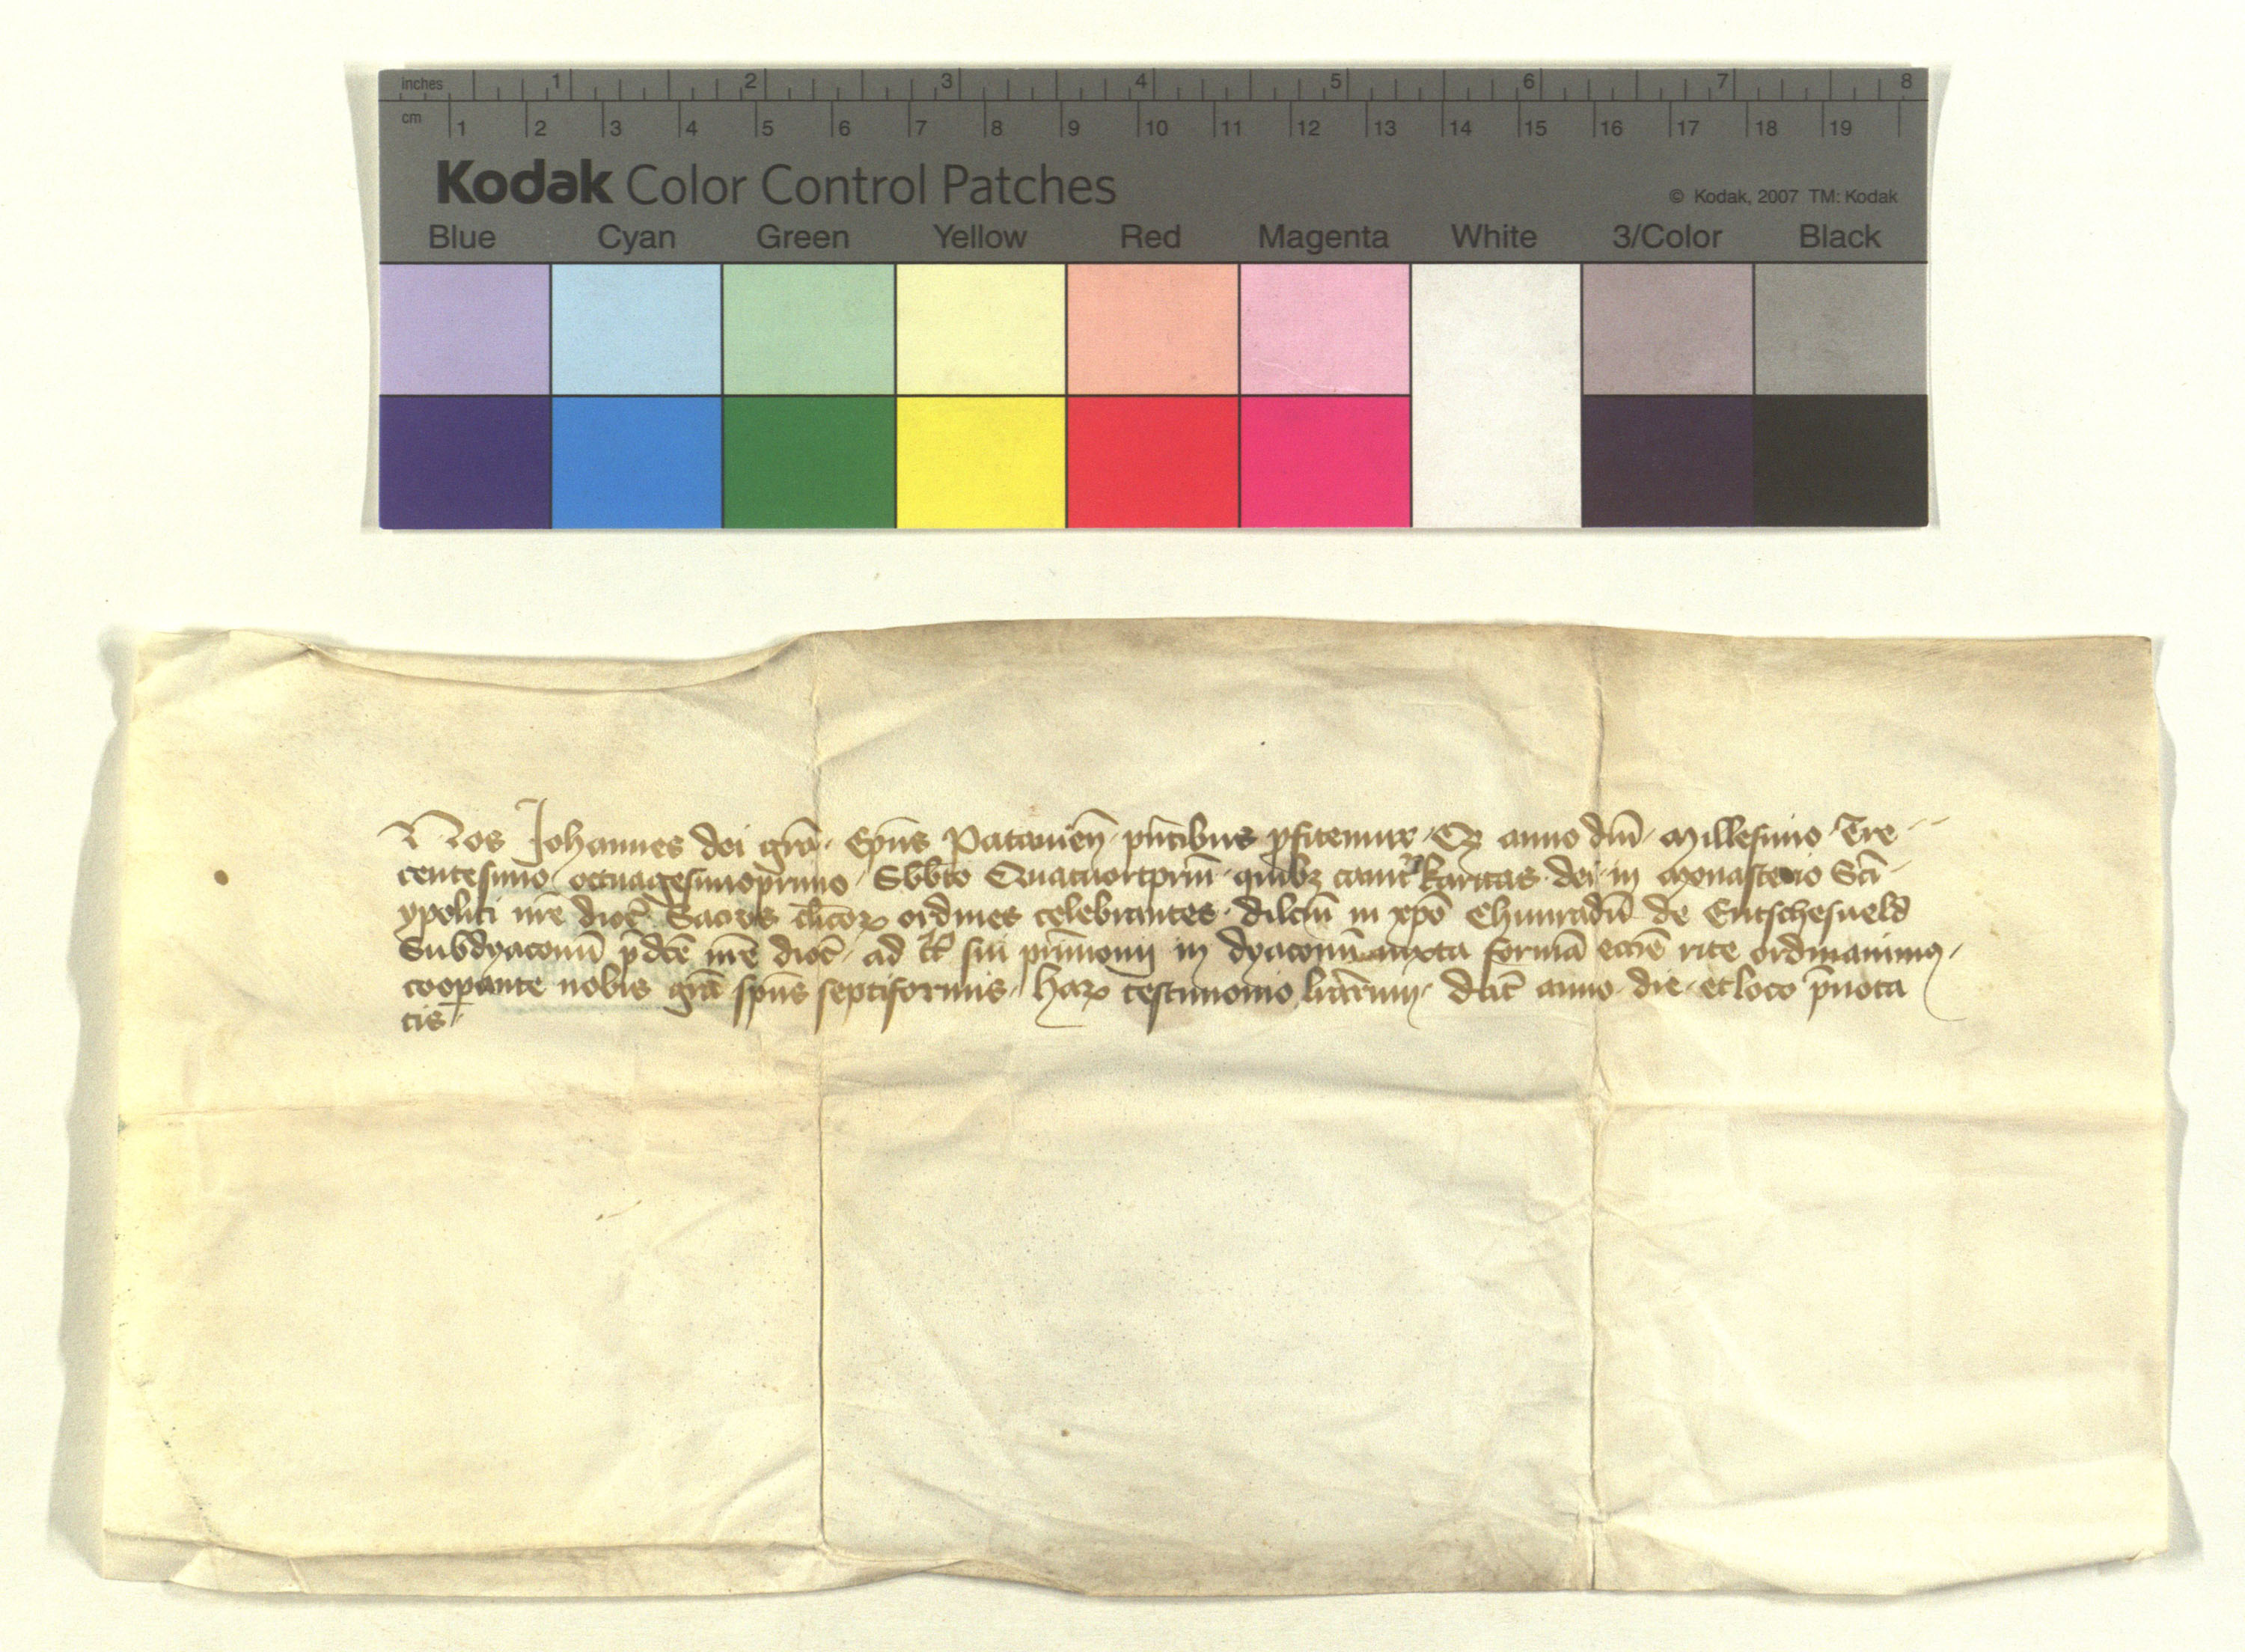 inches 1 2 3 4 5 6 7 8
cm 1 2 3 4 5 6 7 8 9 10 11 12 13 14 15 16 17 18 19
Kodak Color Control Patches
© Kodak, 2007 TM: Kodak
Blue Cyan Green Yellow Red Magenta White 3/Color Black
Nos Johannes dei gra͞ Ep͞us Patauien͞ pn͞tibus ꝓfitemur Qꝫ anno dn͞i Millesimo Tre
centesimo octuagesimoprimo Sbb͞to Quatuortpm͞ quibꝫ cant͞r karitas dei in monasterio Sc͞i
ypoliti nr͞e dioc͞ Sacros cl͞icoꝝ ordines celebrantes dilc͞m in xp͞o Chunradu͞ de Entschesueld
Subdyaconu͞ p͞dc͞e nr͞e dioc͞ ad sui pr͞imonii in dyaconu͞ iuxta forma͞ eccl͞e rite ordinauimꝰ
coop̱ante nobis gra͞ sp͞us septiformis haꝝ testimonio lr͞arum Dat͞ anno die et loco p͞nota
tis